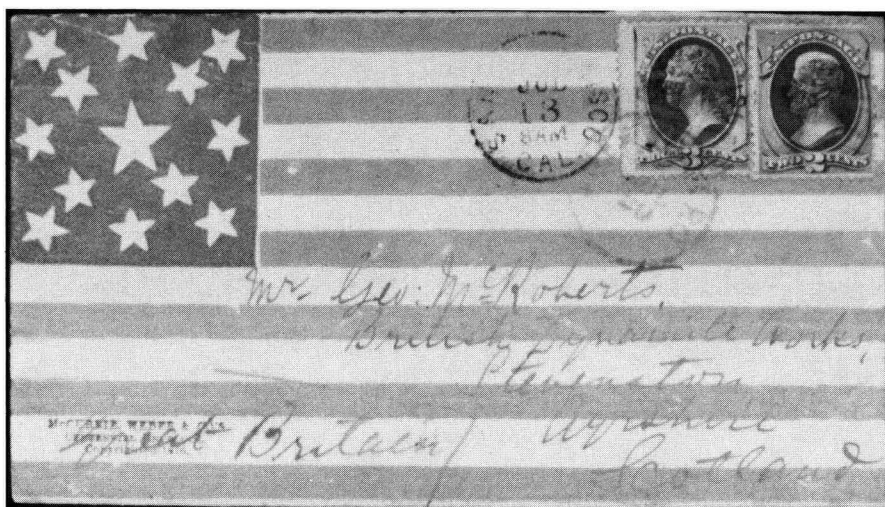 SAN
JUL
13
8AM
CAL.
U.S. POSTAGE
THREE 3 CENTS
U.S. POSTAGE
TWO 2 CENTS
Mr. Geo. McRoberts,
British Dynamite Works,
Stevenston
Ayrshire
Scotland
Great Britain